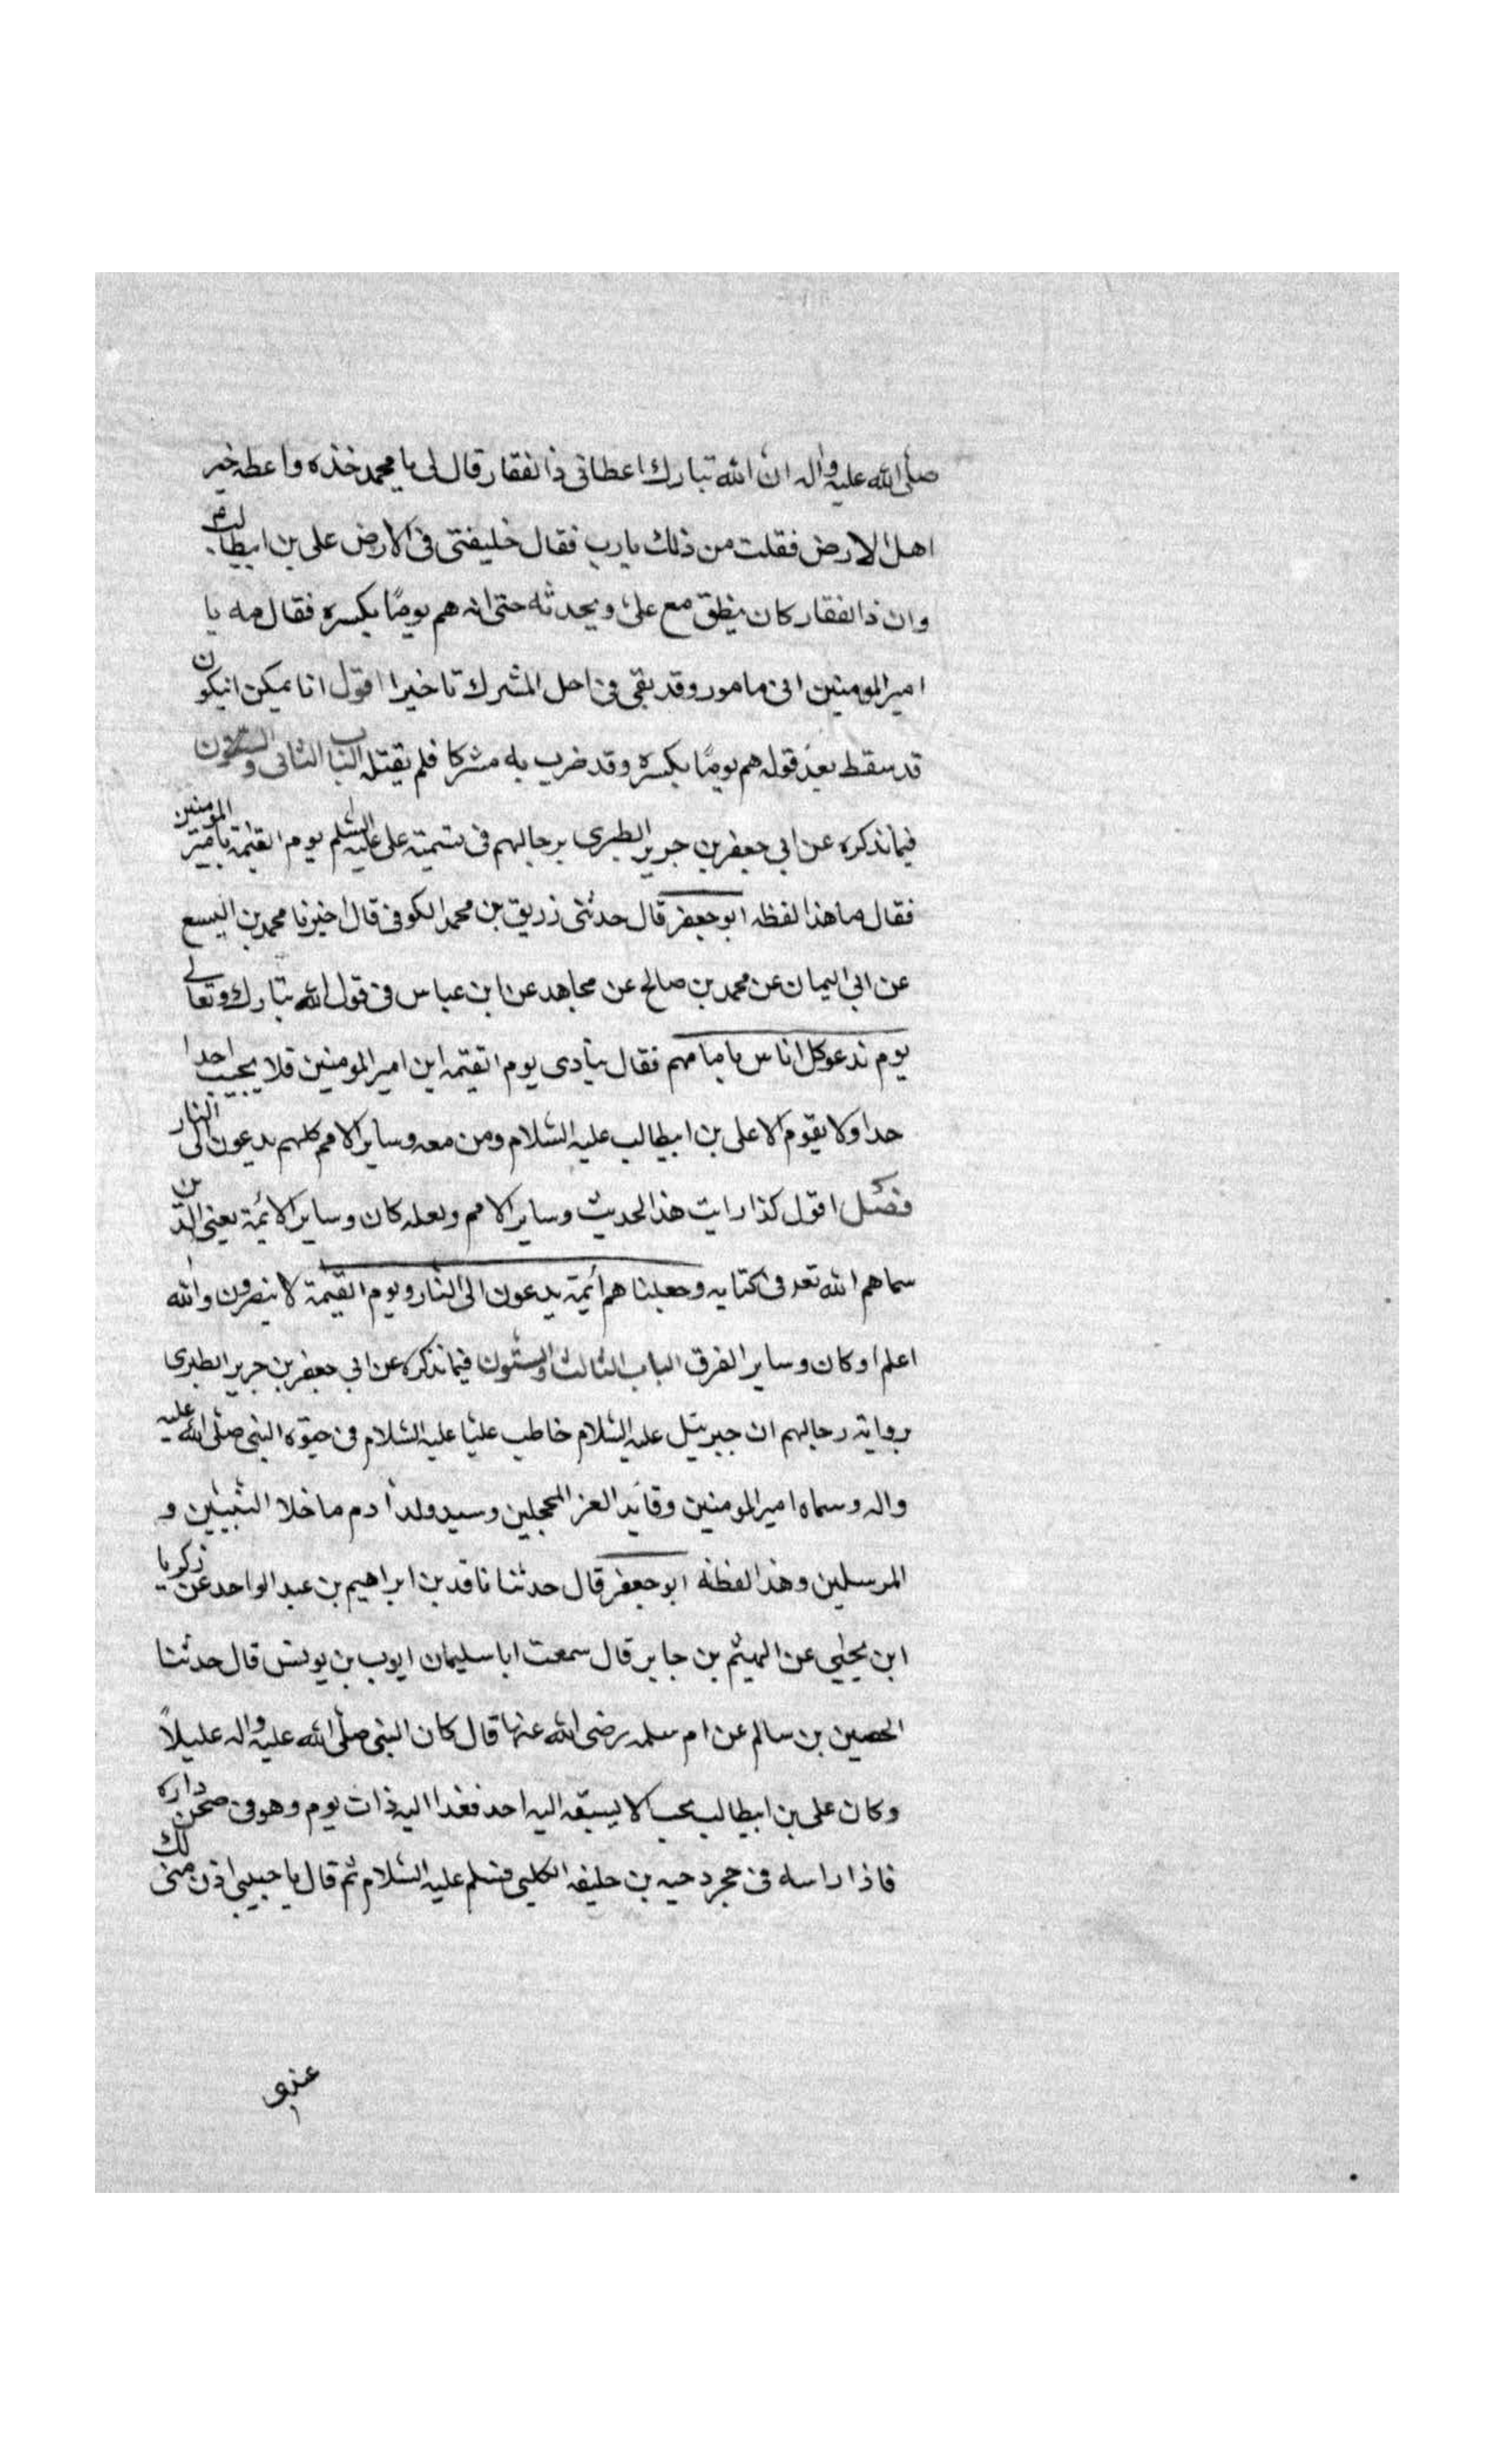 صلى الله عليه واله ان الله تبارك اعطانى ذا لفقار قال لى يا محمد خذه واعطه خير
اهل الارض فقلت من ذلك يا رب فقال خليفتى فى الارض على بن ابيطالب
وان ذا لفقار كان ينطق مع على ويحدثه حتى انه هم يوما بكسره فقال مه يا
امير المومنين انى مامور وقد بقى فى اجل المشرك تاخيرا اقول انا يمكن انيكون
قد سقط بعد قوله هم يوما بكسره وقد ضرب به مشركا فلم يقتله الباب الثانى والستون
فيما نذكره عن ابي جعفر بن جرير الطبرى برجالهم فى تسمية على عليه السلم يوم القيمة بامير المومنين
فقال ما هذا لفظه ابو جعفر قال حدثنى زريق بن محمد الكوفى قال اخبرنا محمد بن اليسع
عن ابى اليمان عن محمد بن صالح عن مجاهد عن ابن عباس فى قول الله تبارك وتعالى
يوم ندعو كل اناس بامامهم فقال ينادى يوم القيمة اين امير المومنين فلا يجيب احدا
حدا ولا يقوم الا على بن ابيطالب عليه السلام ومن معه وساير الامم كلهم يدعون الى النار
فصل اقول كذا رايت هذا الحديث وساير الامم ولعله كان وساير الائمة يعنى الذين
سماهم الله تعـ فى كتابه وجعلنا هم أئمة يدعون الى النار ويوم القيمة لا ينصرون والله
اعلم او كان وساير الفرق الباب الثالث والستون فيما نذكره عن ابي جعفر بن جرير الطبرى
رواية رجالهم ان جبرئيل عليه السلام خاطب عليا عليه السلام فى حيوة النبى صلى الله عليه
واله وسماه امير المومنين وقايد الغر المحجلين وسيد ولد ادم ما خلا النبيين و
المرسلين وهذا لفظه ابو جعفر قال حدثنا ناقد بن ابراهيم بن عبد الواحد عن زكريا
ابن يحيى عن الهيثم بن جابر قال سمعت ابا سليمان ايوب بن يونس قال حدثنا
الحصين بن سالم عن ام سلمه رضى الله عنها قال كان النبى صلى الله عليه واله عليلاً
وكان على بن ابيطالب يحب الا يسبقه اليه احد فغدا اليه ذات يوم وهو فى صحن داره
فاذا راسه فى حجر دحيه بن خليفه الكلبى فسلم عليه السلام ثم قال يا حبيبى اذن منى لك
عندى